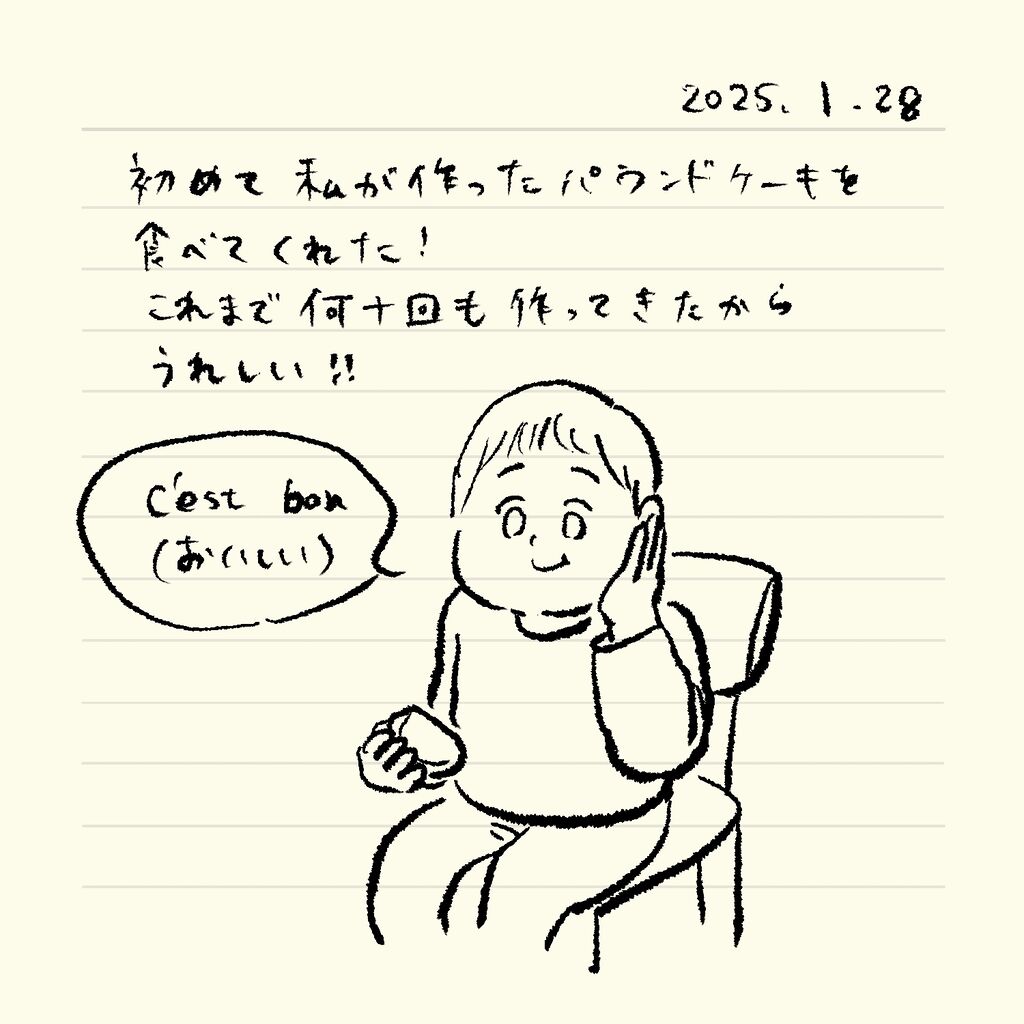 2025. 1.28
初めて 私が作ったパウンドケーキを
食べてくれた!
これまで 何十回も 作ってきたから
うれしい!!
C'est bon
(おいしい)